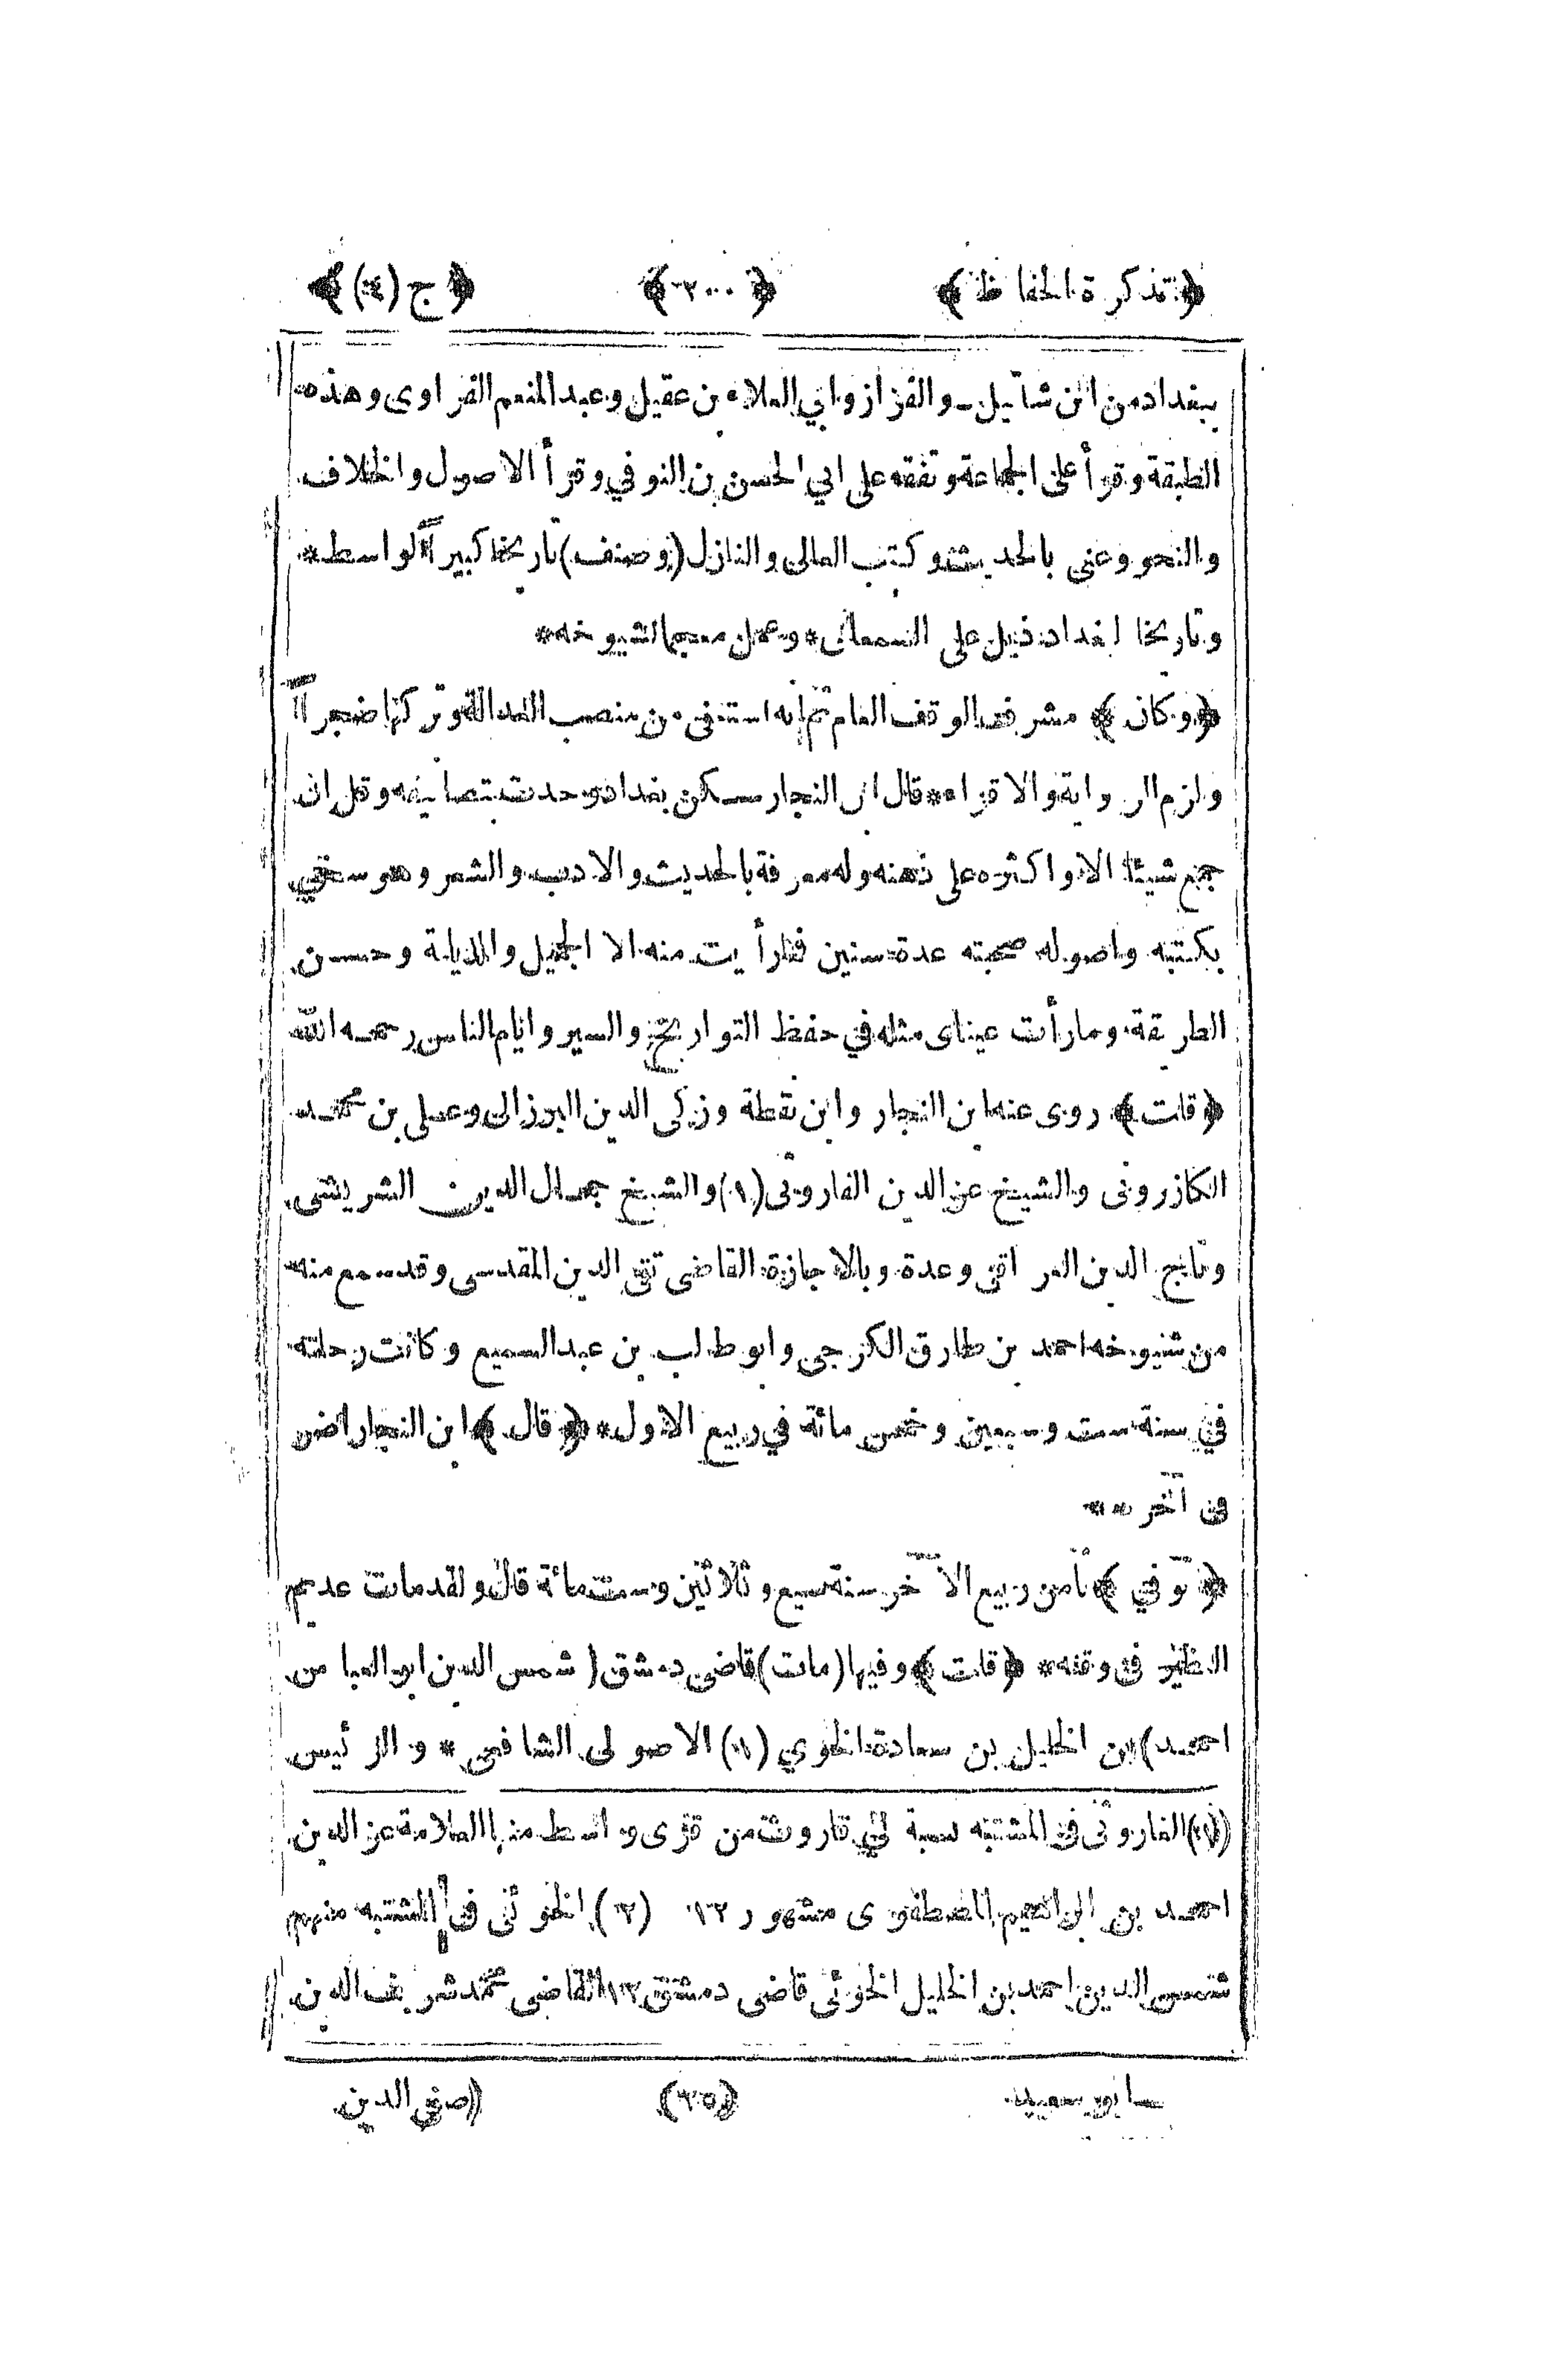 ﴿ تذكرة الحفاظ ﴾ ﴿ ٢٠٠ ﴾ ﴿ ج (٤) ﴾
ببغداد من ابن شاتيل والقزاز وابي العلاء بن عقيل وعبد المنعم الفراوى وهذه
الطبقة وقرأ على الجماعة وتفقه على ابي الحسن بن البوفي وقرأ الاصول والخلاف
والنحو وعنى بالحديث وكتب العالى والنازل (وصنف) تاريخا كبيراً لواسط *
وتاريخا لبغداد ذيل على السمعانى * وعمل معجما لشيوخه *
﴿ وكان ﴾ مشرف الوقف العام ثم انه استعفى من منصب العدالة وتركها ضجراً
ولزم الرواية والاقراء * قال ابن النجار سكن بغداد وحدث بتصانيفه وقل ان
جمع شيئا الا واكثره على ذهنه وله معرفة بالحديث والادب والشعر وهو سخي
بكتبه واصوله صحبته عدة سنين فما رأيت منه الا الجميل والديانة وحسن
الطريقة وما رأت عيناى مثله في حفظ التواريخ والسير وايام الناس رحمه الله
﴿ قلت ﴾ روى عنه ابن النجار وابن نقطة وزكى الدين البرزالى وعلى بن محمد
الكازرونى والشيخ عز الدين الفاروثى (١) والشيخ جمال الدين الشريشى
وتاج الدين العراقى وعدة وبالاجازة القاضى تقى الدين المقدسى وقد سمع منه
من شيوخه احمد بن طارق الكركجى وابو طالب بن عبد السميع وكانت رحلته
في سنة ست وسبعين وخمس مائة في ربيع الاول * ﴿ قال ﴾ ابن النجار اضر
فى آخره *
﴿ توفي ﴾ ثامن ربيع الآخر سنة سبع وثلاثين وست مائة قال ولقد مات عديم
النظير فى وقته * ﴿ قلت ﴾ وفيها (مات) قاضى دمشق (شمس الدين ابو العباس
احمد) بن الخليل بن سعادة الخوي (٢) الاصولى الشافعى * والرئيس
(١) الفاروثى فى المشتبه نسبة الى فاروث من قرى واسط منها العلامة عز الدين
احمد بن ابراهيم المصطفوى مشهور ١٢ (٢) الخوئى فى المشتبه منهم
شمس الدين احمد بن الخليل الخوئى قاضى دمشق ١٢ القاضى محمد شريف الدين
ابو سعيد (٢٥) (صفي الدين